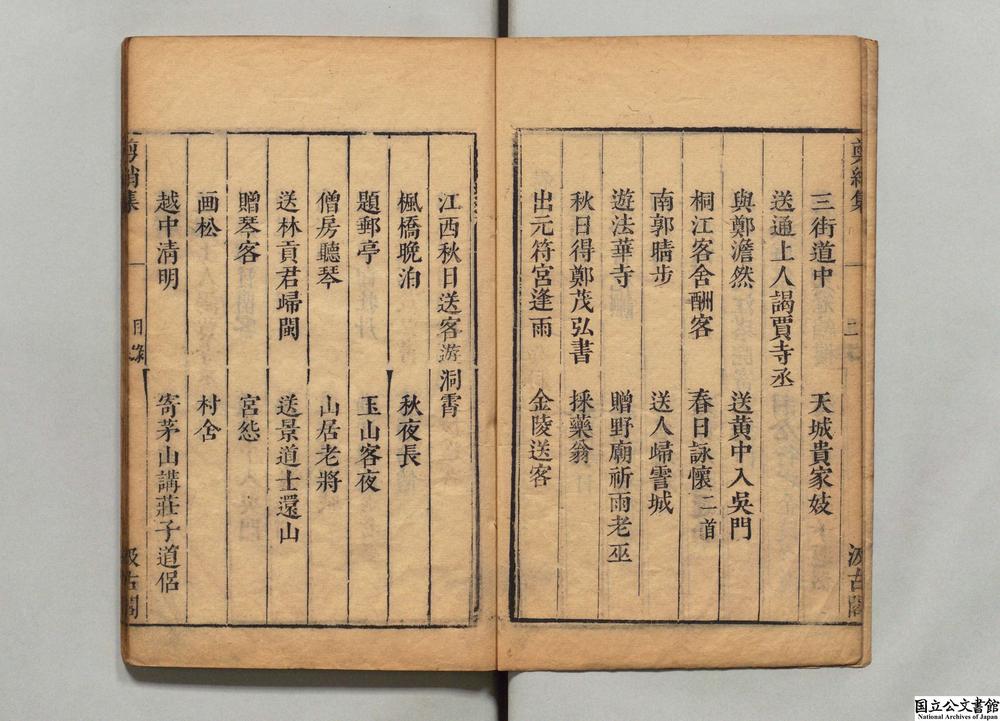 剪綃集 二 汲古閣
三街道中 天城貴家妓
送通上人謁賈寺丞
與鄭澹然 送黃中入吳門
桐江客舍酬客 春日詠懷二首
南郭晴步 送人歸霅城
遊法華寺 贈野廟祈雨老巫
秋日得鄭茂弘書 採藥翁
出元符宮逢雨 金陵送客
江西秋日送客遊洞霄
楓橋晚泊 秋夜長
題郵亭 玉山客夜
僧房聽琴 山居老將
送林貢君歸閩 送景道士還山
贈琴客 宮怨
画松 村舍
越中清明 寄茅山講莊子道侶
剪綃集 目錄 汲古閣
国立公文書館
National Archives of Japan